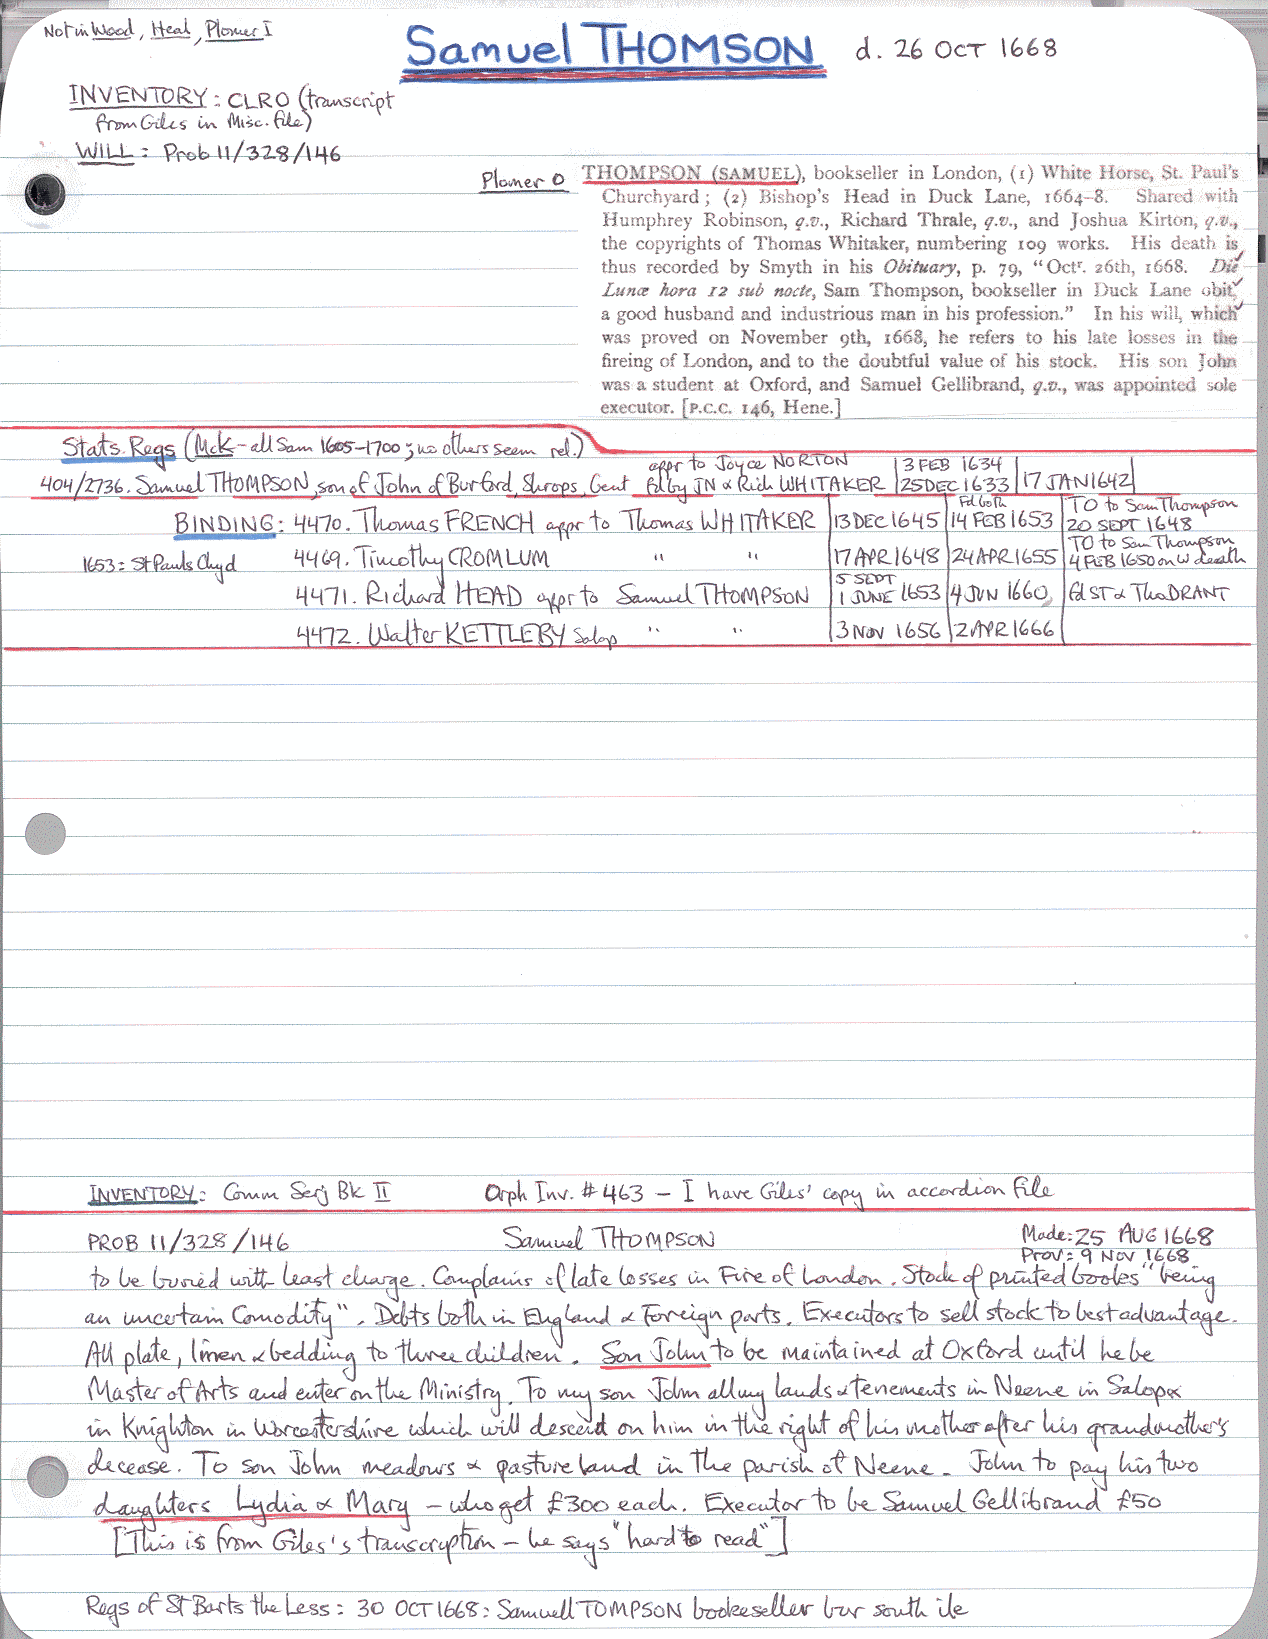 Not in Wood, Heal, Plomer I
Samuel THOMSON d. 26 OCT 1668
INVENTORY: CLRO (transcript
from Giles in Misc. file)
WILL: Prob 11/328/146
Plomer O THOMPSON (SAMUEL), bookseller in London, (1) White Horse, St. Paul's
Churchyard; (2) Bishop's Head in Duck Lane, 1664-8. Shared with
Humphrey Robinson, q.v., Richard Thrale, q.v., and Joshua Kirton, q.v.,
the copyrights of Thomas Whitaker, numbering 109 works. His death is
thus recorded by Smyth in his Obituary, p. 79, "Octr. 26th, 1668. Die
Lunæ hora 12 sub nocte, Sam Thompson, bookseller in Duck Lane obit,
a good husband and industrious man in his profession." In his will, which
was proved on November 9th, 1668, he refers to his late losses in the
fireing of London, and to the doubtful value of his stock. His son John
was a student at Oxford, and Samuel Gellibrand, q.v., was appointed sole
executor. [P.C.C. 146, Hene.]
Stats. Regs (McK - all Sam 1605-1700; no others seem rel.)
appr to Joyce NORTON 3 FEB 1634
404/2736. Samuel THOMPSON, son of John of Burford, Shrops, Gent fd by JN & Rich WHITAKER 25 DEC 1633 17 JAN 1642
Fd both TO to Sam Thompson
BINDING: 4470. Thomas FRENCH appr to Thomas WHITAKER 13 DEC 1645 14 FEB 1653 20 SEPT 1648
TO to Sam Thompson
1653: St Pauls Chyd 4469. Timothy CROMLUM " " 17 APR 1648 24 APR 1655 4 FEB 1650 on W death
5 SEPT
4471. Richard HEAD appr to Samuel THOMPSON 1 JUNE 1653 4 JUN 1660 fd ST & Tho DRANT
4472. Walter KETTLEBY Salop " " 3 NOV 1656 2 APR 1666
INVENTORY: Comm Serj Bk II Orph Inv. # 463 - I have Giles' copy in accordion file
PROB 11/328/146 Samuel THOMPSON Made: 25 AUG 1668
Prov: 9 NOV 1668
to be buried with least charge. Complains of late losses in Fire of London. Stock of printed bookes "being
an uncertain Comodity". Debts both in England & Foreign parts. Executors to sell stock to best advantage.
All plate, linen & bedding to three children. Son John to be maintained at Oxford until he be
Master of Arts and enter on the Ministry. To my son John all my lands & tenements in Neene in Salop &
in Knighton in Worcestershire which will descend on him in the right of his mother after his grandmother's
decease. To son John meadows & pasture land in the parish of Neene. John to pay his two
daughters Lydia & Mary - who get £300 each. Executor to be Samuel Gellibrand £50
[This is from Giles's transcription - he says "hard to read"]
Regs of St Barts the Less: 30 OCT 1668: Samuell TOMPSON bookeseller bur south ile